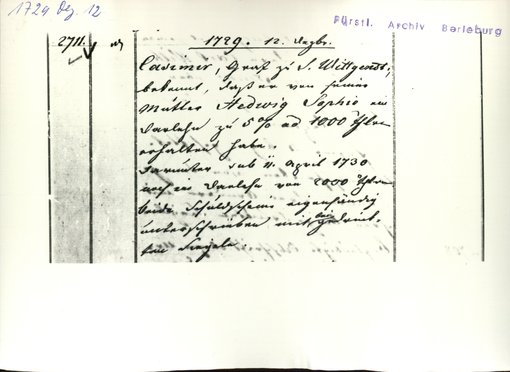 1729 Dez. 12
Fürstl. Archiv Berleburg
2711.
1729. 12. Dezbr.
Casimir, Graf zu S. Wittgenst.,
bekennt, daß er von seiner
Mutter Hedwig Sophie ein
Darlehn zu 5% ad 1000 Thlr
erhalten habe.
Darunter sub 4. April 1730
noch ein Darlehn von 2000 Thlr
beide Schuldscheine eigenhändig
unterschrieben mit
ten Siegeln.